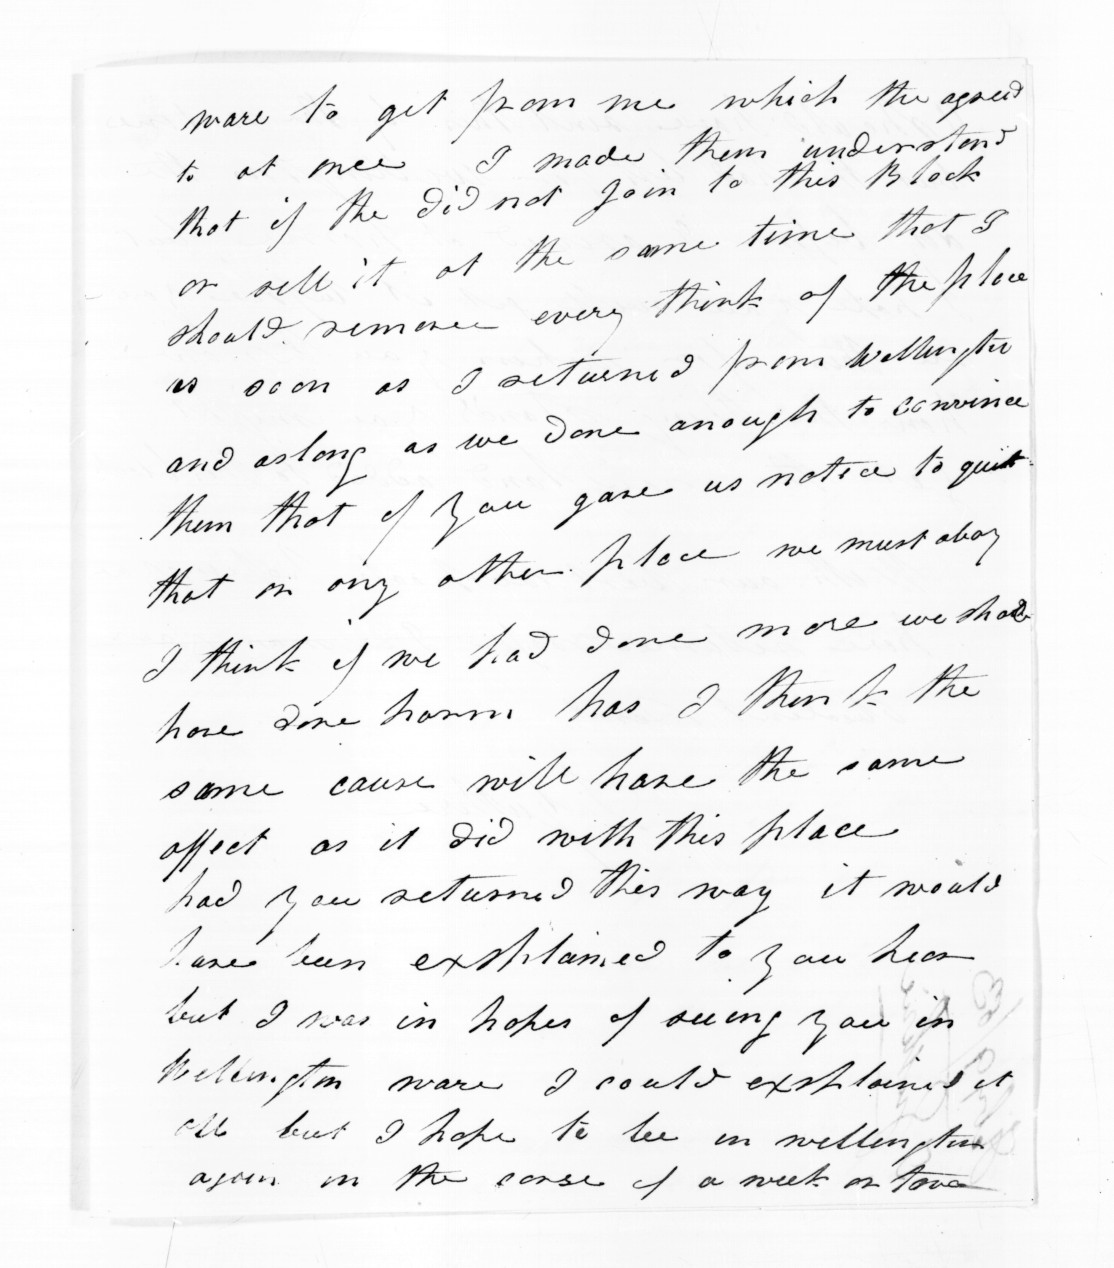 ware to get from me which the agreed
to at once I made them understand
that if the did not join to this Block
or sell it at the same time that I
should remove every think of the place
as soon as I returned from Wellington
and aslong as we done anough to convince
them that if you gave us notice to quit
that or any other place we must abay
I think if we had done more we should
have done harm has I think the
same cause will have the same
affect as it did with this place
had you returned this way it would
have been exshlained to you hear
but I was in hopes of seeing you in
Wellington ware I could exshlained it
all but I hope to be in wellington
again in the corse of a week or tow